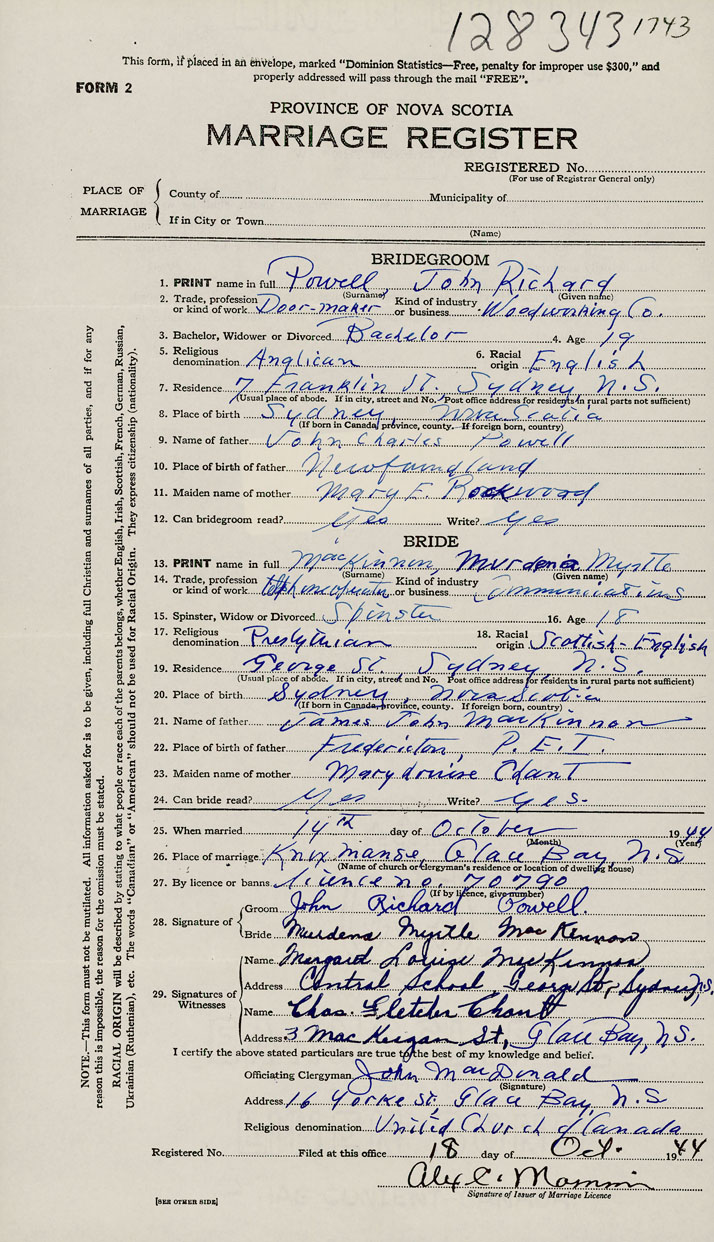 128343 1743
This form, if placed in an envelope, marked "Dominion Statistics—Free, penalty for improper use $300," and
properly addressed will pass through the mail "FREE".
FORM 2
PROVINCE OF NOVA SCOTIA
MARRIAGE REGISTER
REGISTERED No.
(For use of Registrar General only)
PLACE OF MARRIAGE
County of Municipality of
If in City or Town
(Name)
BRIDEGROOM
1. PRINT name in full Powell, John Richard
(Surname) (Given name)
2. Trade, profession or kind of work Door-maker Kind of industry or business Woodworking Co.
3. Bachelor, Widower or Divorced Bachelor 4. Age 19
5. Religious denomination Anglican 6. Racial origin English
7. Residence 7 Franklin St. Sydney, N.S.
(Usual place of abode. If in city, street and No. Post office address for residents in rural parts not sufficient)
8. Place of birth Sydney, Nova Scotia
(If born in Canada, province, county. If foreign born, country)
9. Name of father John Charles Powell
10. Place of birth of father Newfoundland
11. Maiden name of mother Mary E. Rockwood
12. Can bridegroom read? Yes Write? Yes
BRIDE
13. PRINT name in full MacKinnon, Murdena Myrtle
(Surname) (Given name)
14. Trade, profession or kind of work Kind of industry or business Communications
15. Spinster, Widow or Divorced Spinster 16. Age 18
17. Religious denomination Presbyterian 18. Racial origin Scottish-English
19. Residence George St. Sydney, N.S.
(Usual place of abode. If in city, street and No. Post office address for residents in rural parts not sufficient)
20. Place of birth Sydney, Nova Scotia
(If born in Canada, province, county. If foreign born, country)
21. Name of father James John MacKinnon
22. Place of birth of father Fredericton, P.E.I.
23. Maiden name of mother Mary Louise Chant
24. Can bride read? Yes Write? Yes.
25. When married 14th day of October 1944
(Month) (Year)
26. Place of marriage Knox manse, Glace Bay, N.S
(Name of church or clergyman's residence or location of dwelling house)
27. By licence or banns licence no. 70790
(If by licence, give number)
28. Signature of
Groom John Richard Powell.
Bride Murdena Myrtle MacKinnon
29. Signatures of Witnesses
Name Margaret Louise MacKinnon
Address Central School, George St., Sydney, N.S.
Name Chas. Fletcher Chant
Address 3 MacKeigan St, Glace Bay, N.S.
I certify the above stated particulars are true to the best of my knowledge and belief.
Officiating Clergyman John MacDonald
(Signature)
Address 16 Yorke St. Glace Bay, N.S
Religious denomination United Church of Canada
Registered No. Filed at this office 18 day of Oct. 1944
Alex C.
Signature of Issuer of Marriage Licence
[SEE OTHER SIDE]
NOTE.—This form must not be mutilated. All information asked for is to be given, including full Christian and surnames of all parties, and if for any
reason this is impossible, the reason for the omission must be stated.
RACIAL ORIGIN will be described by stating to what people or race each of the parents belongs, whether English, Irish, Scottish, French, German, Russian,
Ukrainian (Ruthenian), etc. The words "Canadian" or "American" should not be used for Racial Origin. They express citizenship (nationality).